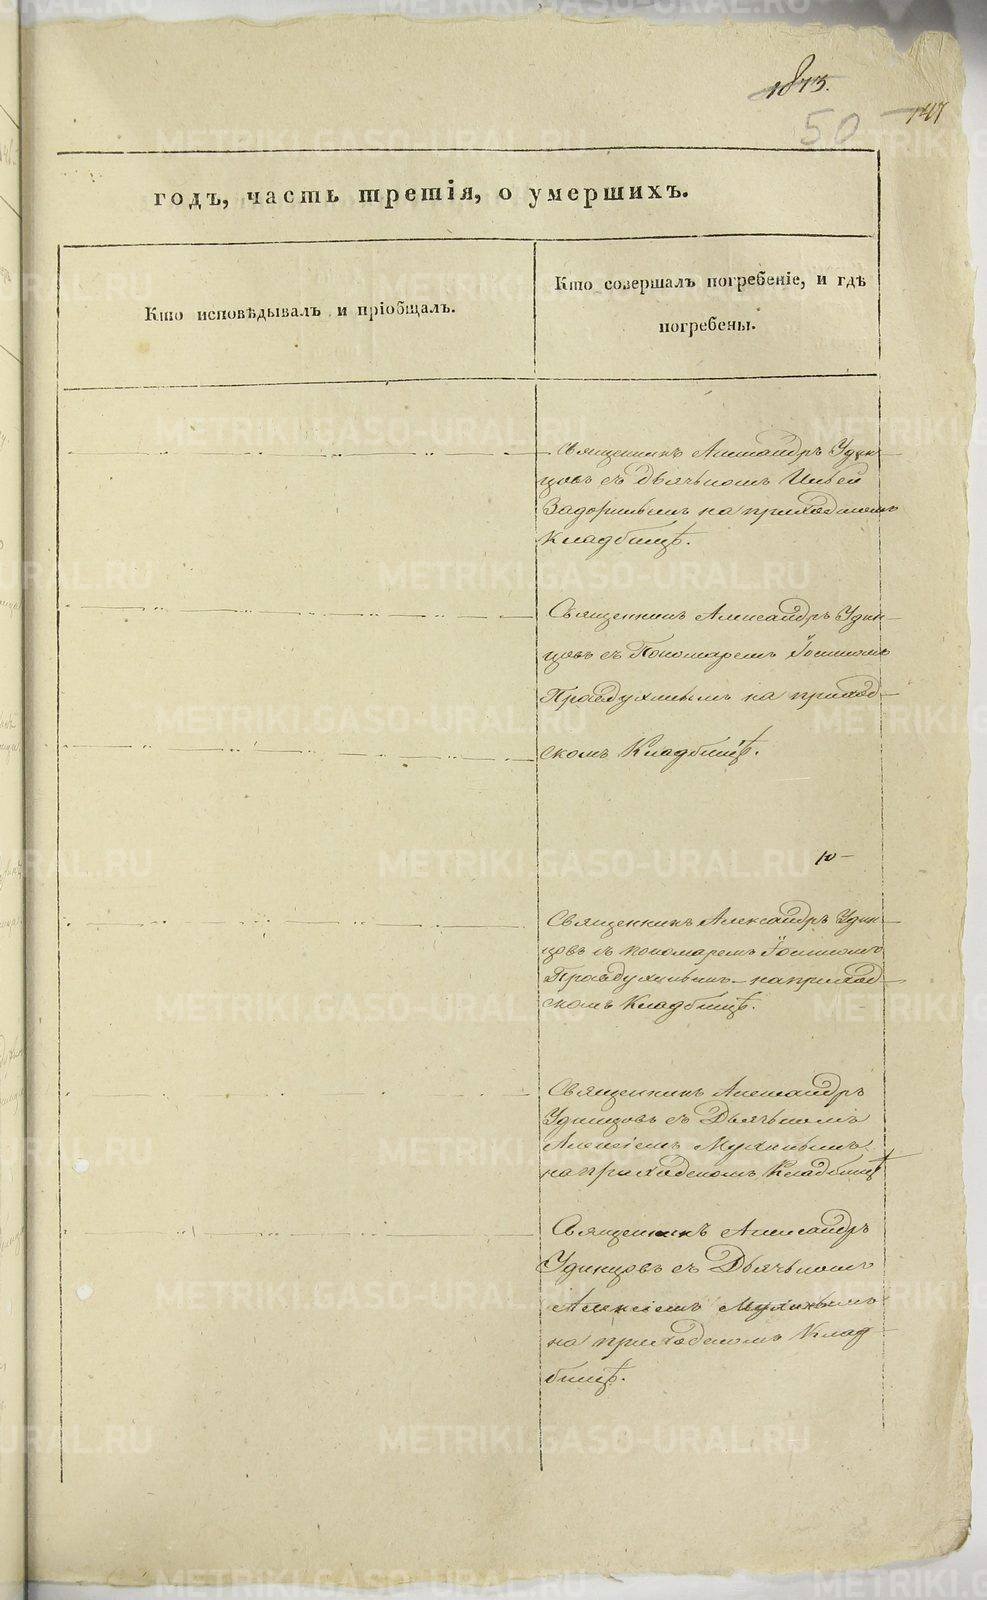 METRIKI.GASO-URAL.RU
1873.
50
147
годъ, часть третія, о умершихъ.
Кто исповѣдывалъ и пріобщалъ.
Кто совершалъ погребеніе, и гдѣ
погребены.
Священникъ Александръ Удин-
цовъ съ Дьячкомъ Ильей
Задоринымъ на приходскомъ
Кладбищѣ.
Священникъ Александръ Удин-
цовъ съ Пономаремъ
на приход-
скомъ Кладбищѣ.
10-
Священникъ Александръ Удин-
цовъ съ пономаремъ
на приход-
скомъ Кладбищѣ.
Священникъ Александръ
Удинцовъ съ Дьячкомъ
Алексіемъ
на приходскомъ Кладбищѣ
Священникъ Александръ
Удинцовъ съ Дьячкомъ
Алексіемъ
на приходскомъ Клад-
бищѣ.